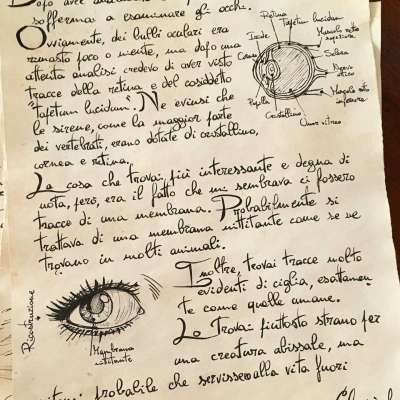 Dopo aver
soffermo a esaminare gli occhi.
Ovviamente, dei bulbi oculari era
rimasto poco o niente, ma dopo una
attenta analisi credevo di aver visto
tracce della retina e del cosiddetto
"Tapetum lucidum". Ne evinsi che
le sirene, come la maggior parte
dei vertebrati, erano dotate di cristallino,
cornea e retina.
Retina
Tapetum lucidum
Iride
Muscolo retto superiore
Cornea
Sclera
Nervo ottico
Pupilla
Muscolo retto inferiore
Cristallino
Umor vitreo
La cosa che trovai più interessante e degna di
nota, però, era il fatto che mi sembrava ci fossero
tracce di una membrana. Probabilmente si
trattava di una membrana nittitante come se ne
trovano in molti animali.
Ricostruzione
Membrana nittitante
Inoltre, trovai tracce molto
evidenti di ciglia, esattamen
te come quelle umane.
Lo trovai piuttosto strano per
una creatura abissale, ma
probabile che servissero alla vita fuori